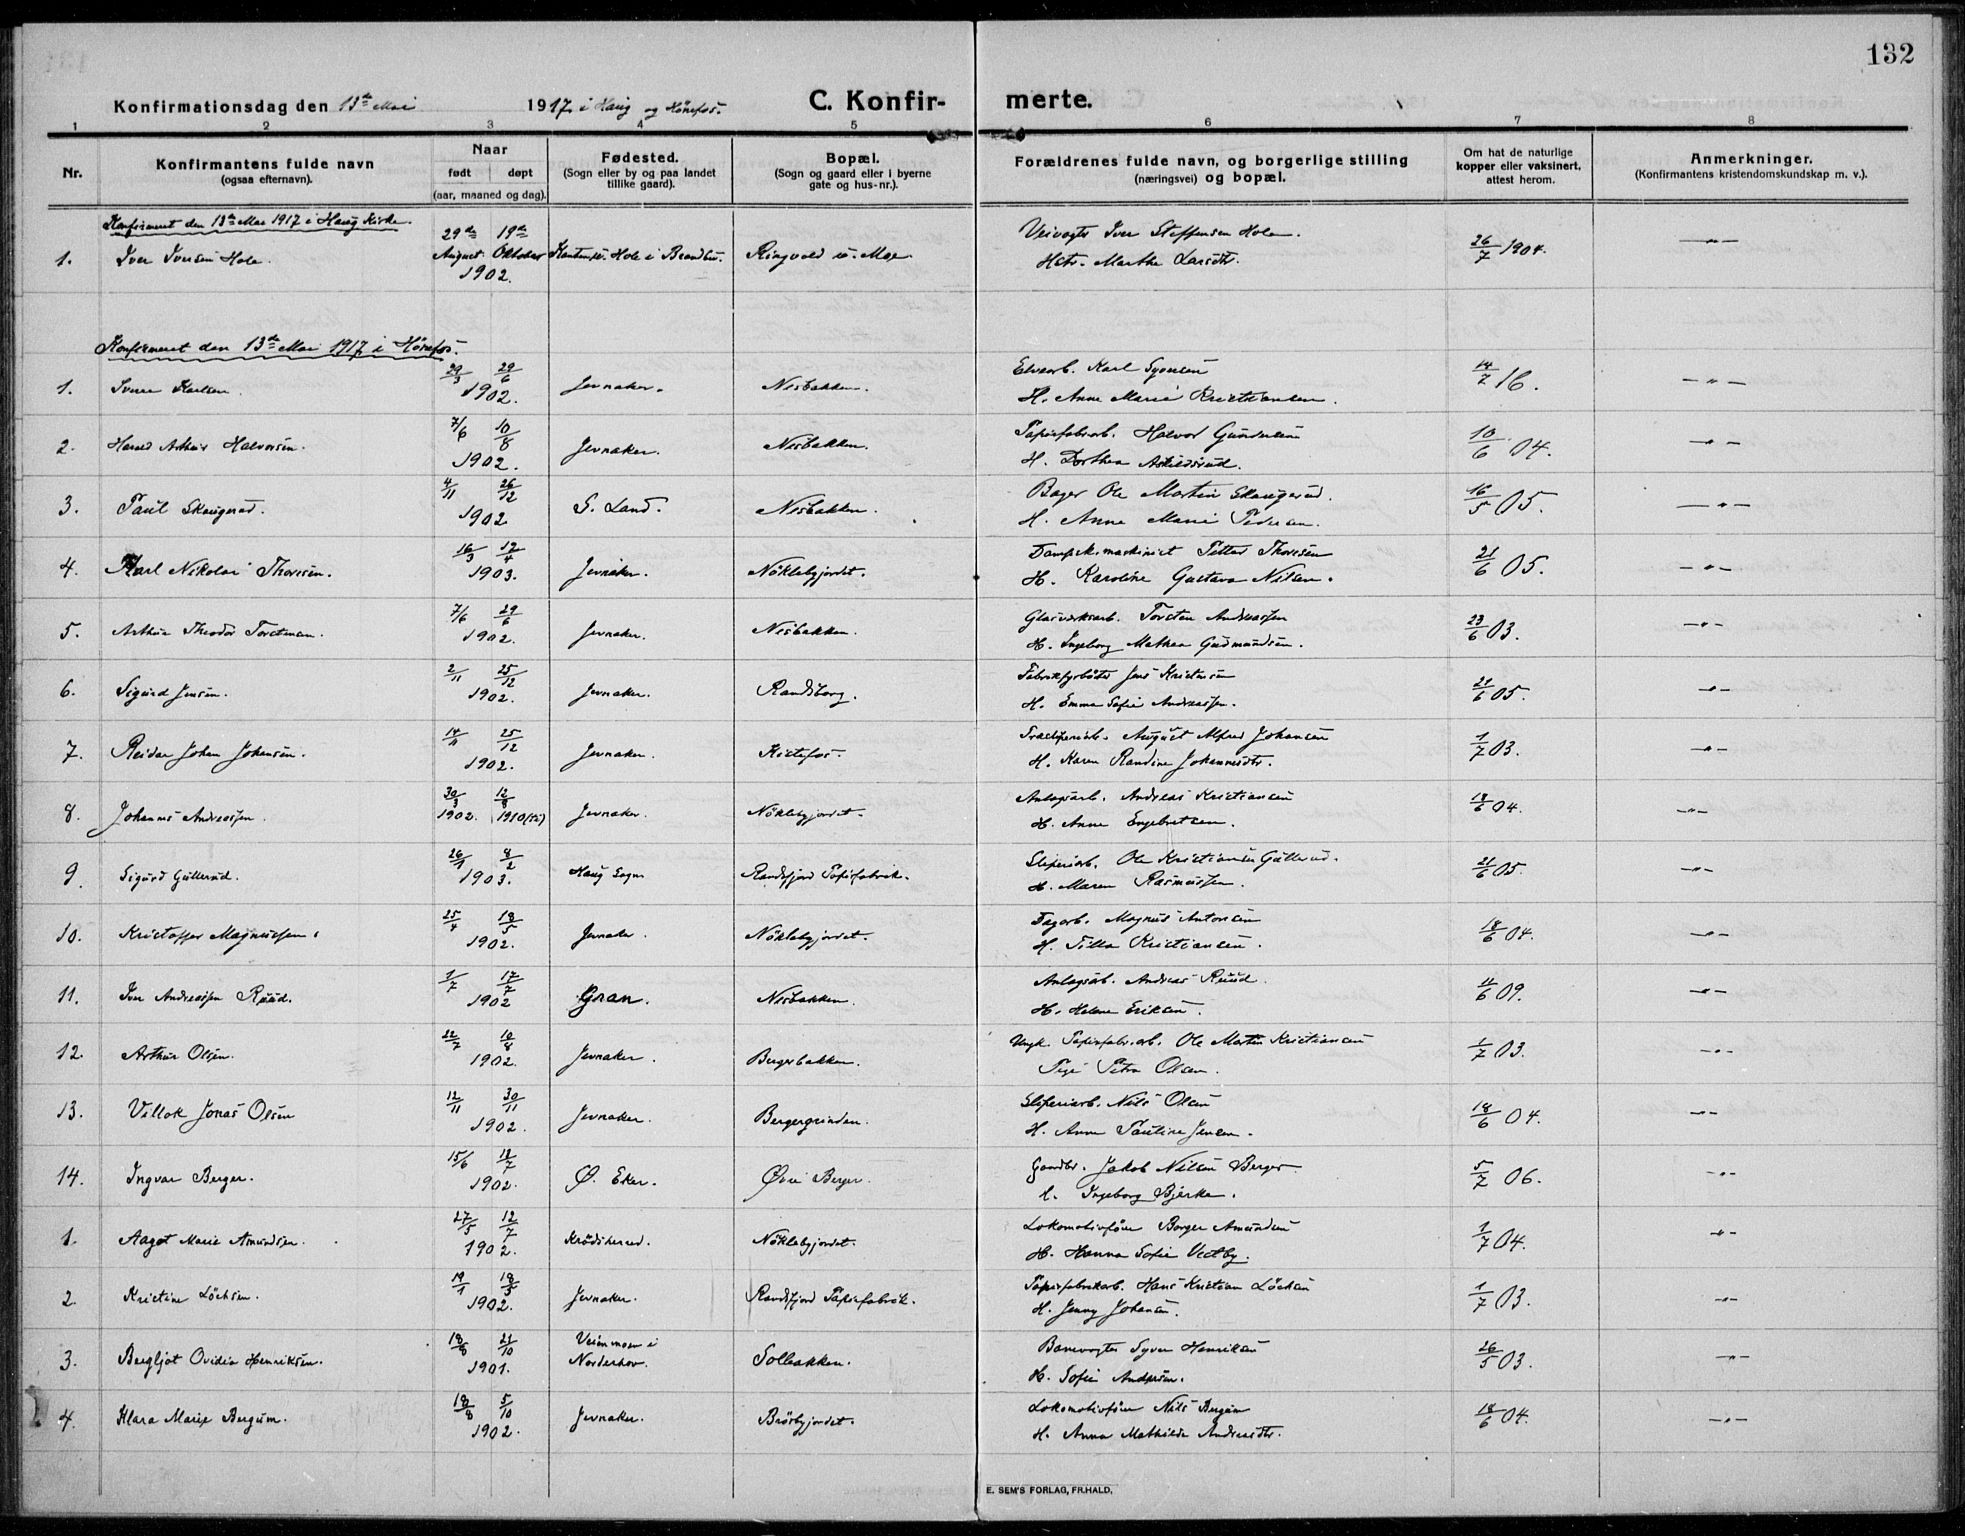 132
Konfirmationsdag den 13de Mai 1917 i Haug og Hönefos. C. Konfir- merte.
1 2 3 4 5 6 7 8
Nr. Konfirmantens fulde navn (ogsaa efternavn). Naar født døpt (aar, maaned og dag). Fødested. (Sogn eller by og paa landet tillike gaard). Bopæl. (Sogn og gaard eller i byerne gate og hus-nr.). Forældrenes fulde navn, og borgerlige stilling (næringsvei) og bopæl. Om hat de naturlige kopper eller vaksinert, attest herom. Anmerkninger. (Konfirmantens kristendomskundskap m. v.).
Konfirmeret den 13de Mai 1917 i Haug Kirke
1. Iver Iversen Hole. 29de August 19de Oktober 1902. Hole i Brandbu. Ringvold u. Moe Veivogter Iver Steffensen Hole. Hstr. Marthe Larsdtr. 26/7 1904. —"—
Konfirmeret den 13de Mai 1917 i Hönefos.
1. Karlsen. 29/3 29/6 1902. Jevnaker. Nesbakken. Karl Syversen H. Anne Marie Kristiansen. 14/7 16. —"—
2. Harald Arthur Halvorsen. 7/6 10/8 1902. Jevnaker. Nesbakken. Papirfabarb. Halvor Gundersen H. Dorthea Askildsrud. 10/6 04. —"—
3. Paul Skaugerud. 4/11 26/12 1902 S. Land. Nesbakken. Bager Ole Martin Skaugerud. H. Anne Marie Pedersen. 16/5 05. —"—
4. Karl Nikolai Thoresen. 16/3 12/4 1903. Jevnaker. Nöklebyjordet. Dampsk. maskinist Petter Thoresen H. Karoline Gustava Nilsen. 21/6 05. —"—
5. Arthur Theodor Torstensen. 7/6 29/6 1902. Jevnaker. Nesbakken. Glasverksarb. Torsten Andreassen H. Ingeborg Mathea Gudmundsen. 23/6 03. —"—
6. Sigurd Jensen. 2/11 25/12 1902. Jevnaker. Randsborg. Fabrikfyrböter Jens Kristensen H. Emma Sofie Andreassen. 21/6 05. —"—
7. Reidar Johan Johansen. 14/11 25/12 1902. Jevnaker. Kistefos. Træsliperiarb. August Alfred Johansen H. Karen Randine Johannesdtr. 1/7 03. —"—
8. Johannes Andreassen. 30/3 1902. 12/8 1910 Jevnaker. Nöklebyjordet. Anlægsarb. Andreas Kristiansen H. Anne Engebretsen. 18/6 04. —"—
9 Sigurd Gullerud. 26/1 8/2 1903. Haug Sogn Randsfjord Papirfabrik. Sliperiarb. Ole Kristiansen Gullerud. H. Maren Rasmussen. 21/6 05. —"—
10. Kristoffer Magnussen. 25/4 18/5 1902. Jevnaker. Nöklebyjordet. Dagarb. Magnus Antonsen H. Kristiansen. 18/6 04. —"—
11. Iver Andreassen Ruud. 1/7 17/7 1902 Gran. Nesbakken. Anlægsarb. Andreas Ruud. H. Helene Eriksen. 11/6 09. —"—
12. Arthur Olsen. 22/7 10/8 1902. Jevnaker. Bergerbakken. Ungk. Papirfabr.arb. Ole Martin Kristiansen Pige Petra Olsen. 1/7 03. —"—
13. Villok Jonas Olsen 12/11 30/11 1902. Jevnaker. Bergergrinden. Sliperiarb. Nils Olsen H. Anne Pauline Jensen. 18/6 04. —"—
14. Ingvar Berger. 15/6 13/7 1902. Ø. Eker. Øvre Berger. Gaardbr. Jakob Nilsen Berger H. Ingeborg Bjerke. 5/7 06. —"—
1. Aagot Marie Amundsen. 27/5 12/7 1902. Krödsherred. Nöklebyjordet. Lokomotivförer Borger Amundsen H. Hanna Sofie Vestby. 1/7 04. —"—
2. Kristine Löchsen. 19/1 18/5 1902. Jevnaker. Randsfjord Papirfabrik. Papirfabrikarb. Hans Kristian Löchsen H. Jenny Johansen. 1/7 03. —"—
3. Bergljot Ovidia Henriksen. 18/8 21/10 1901. Veienmoen i Norderhov. Solbakken. Banevogter Syver Henriksen H. Sofie Andersen. 26/5 03. —"—
4. Klara Marie Bergum. 18/8 5/10 1902. Jevnaker. Brörbyjordet. Lokomotivförer Nils Bergum H. Anna Mathilde Andreasdtr. 18/6 04. —"—
E. SEM'S FORLAG, FR.HALD.